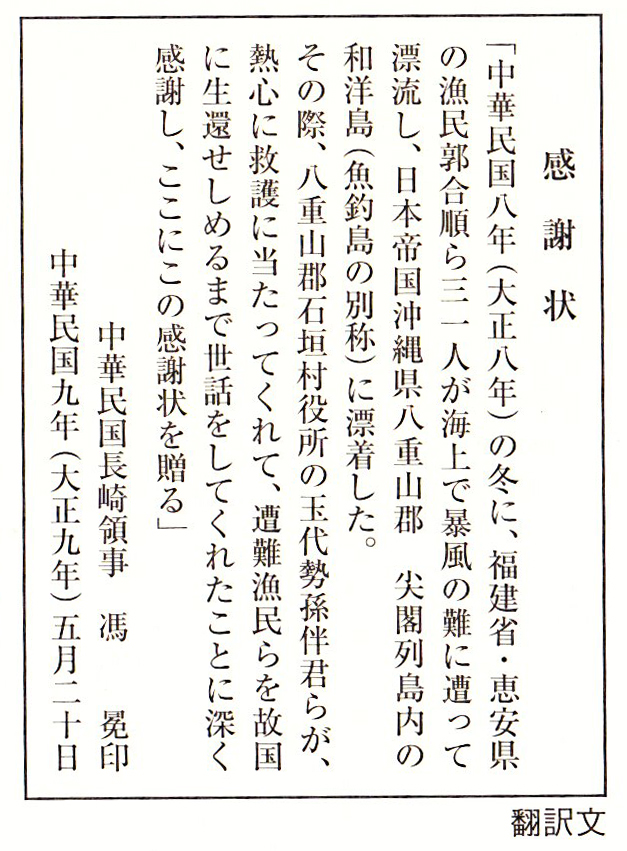 感謝状
「中華民国八年(大正八年)の冬に、福建省・恵安県
の漁民郭合順ら三一人が海上で暴風の難に遭って
漂流し、日本帝国沖縄県八重山郡　尖閣列島内の
和洋島(魚釣島の別称)に漂着した。
その際、八重山郡石垣村役所の玉代勢孫伴君らが、
熱心に救護に当たってくれて、遭難漁民らを故国
に生還せしめるまで世話をしてくれたことに深く
感謝し、ここにこの感謝状を贈る」
中華民国長崎領事　馮　冕印
中華民国九年(大正九年)五月二十日
翻訳文